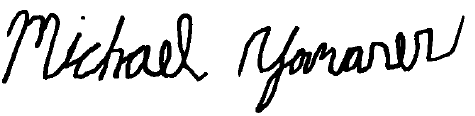 Michael Yomarer